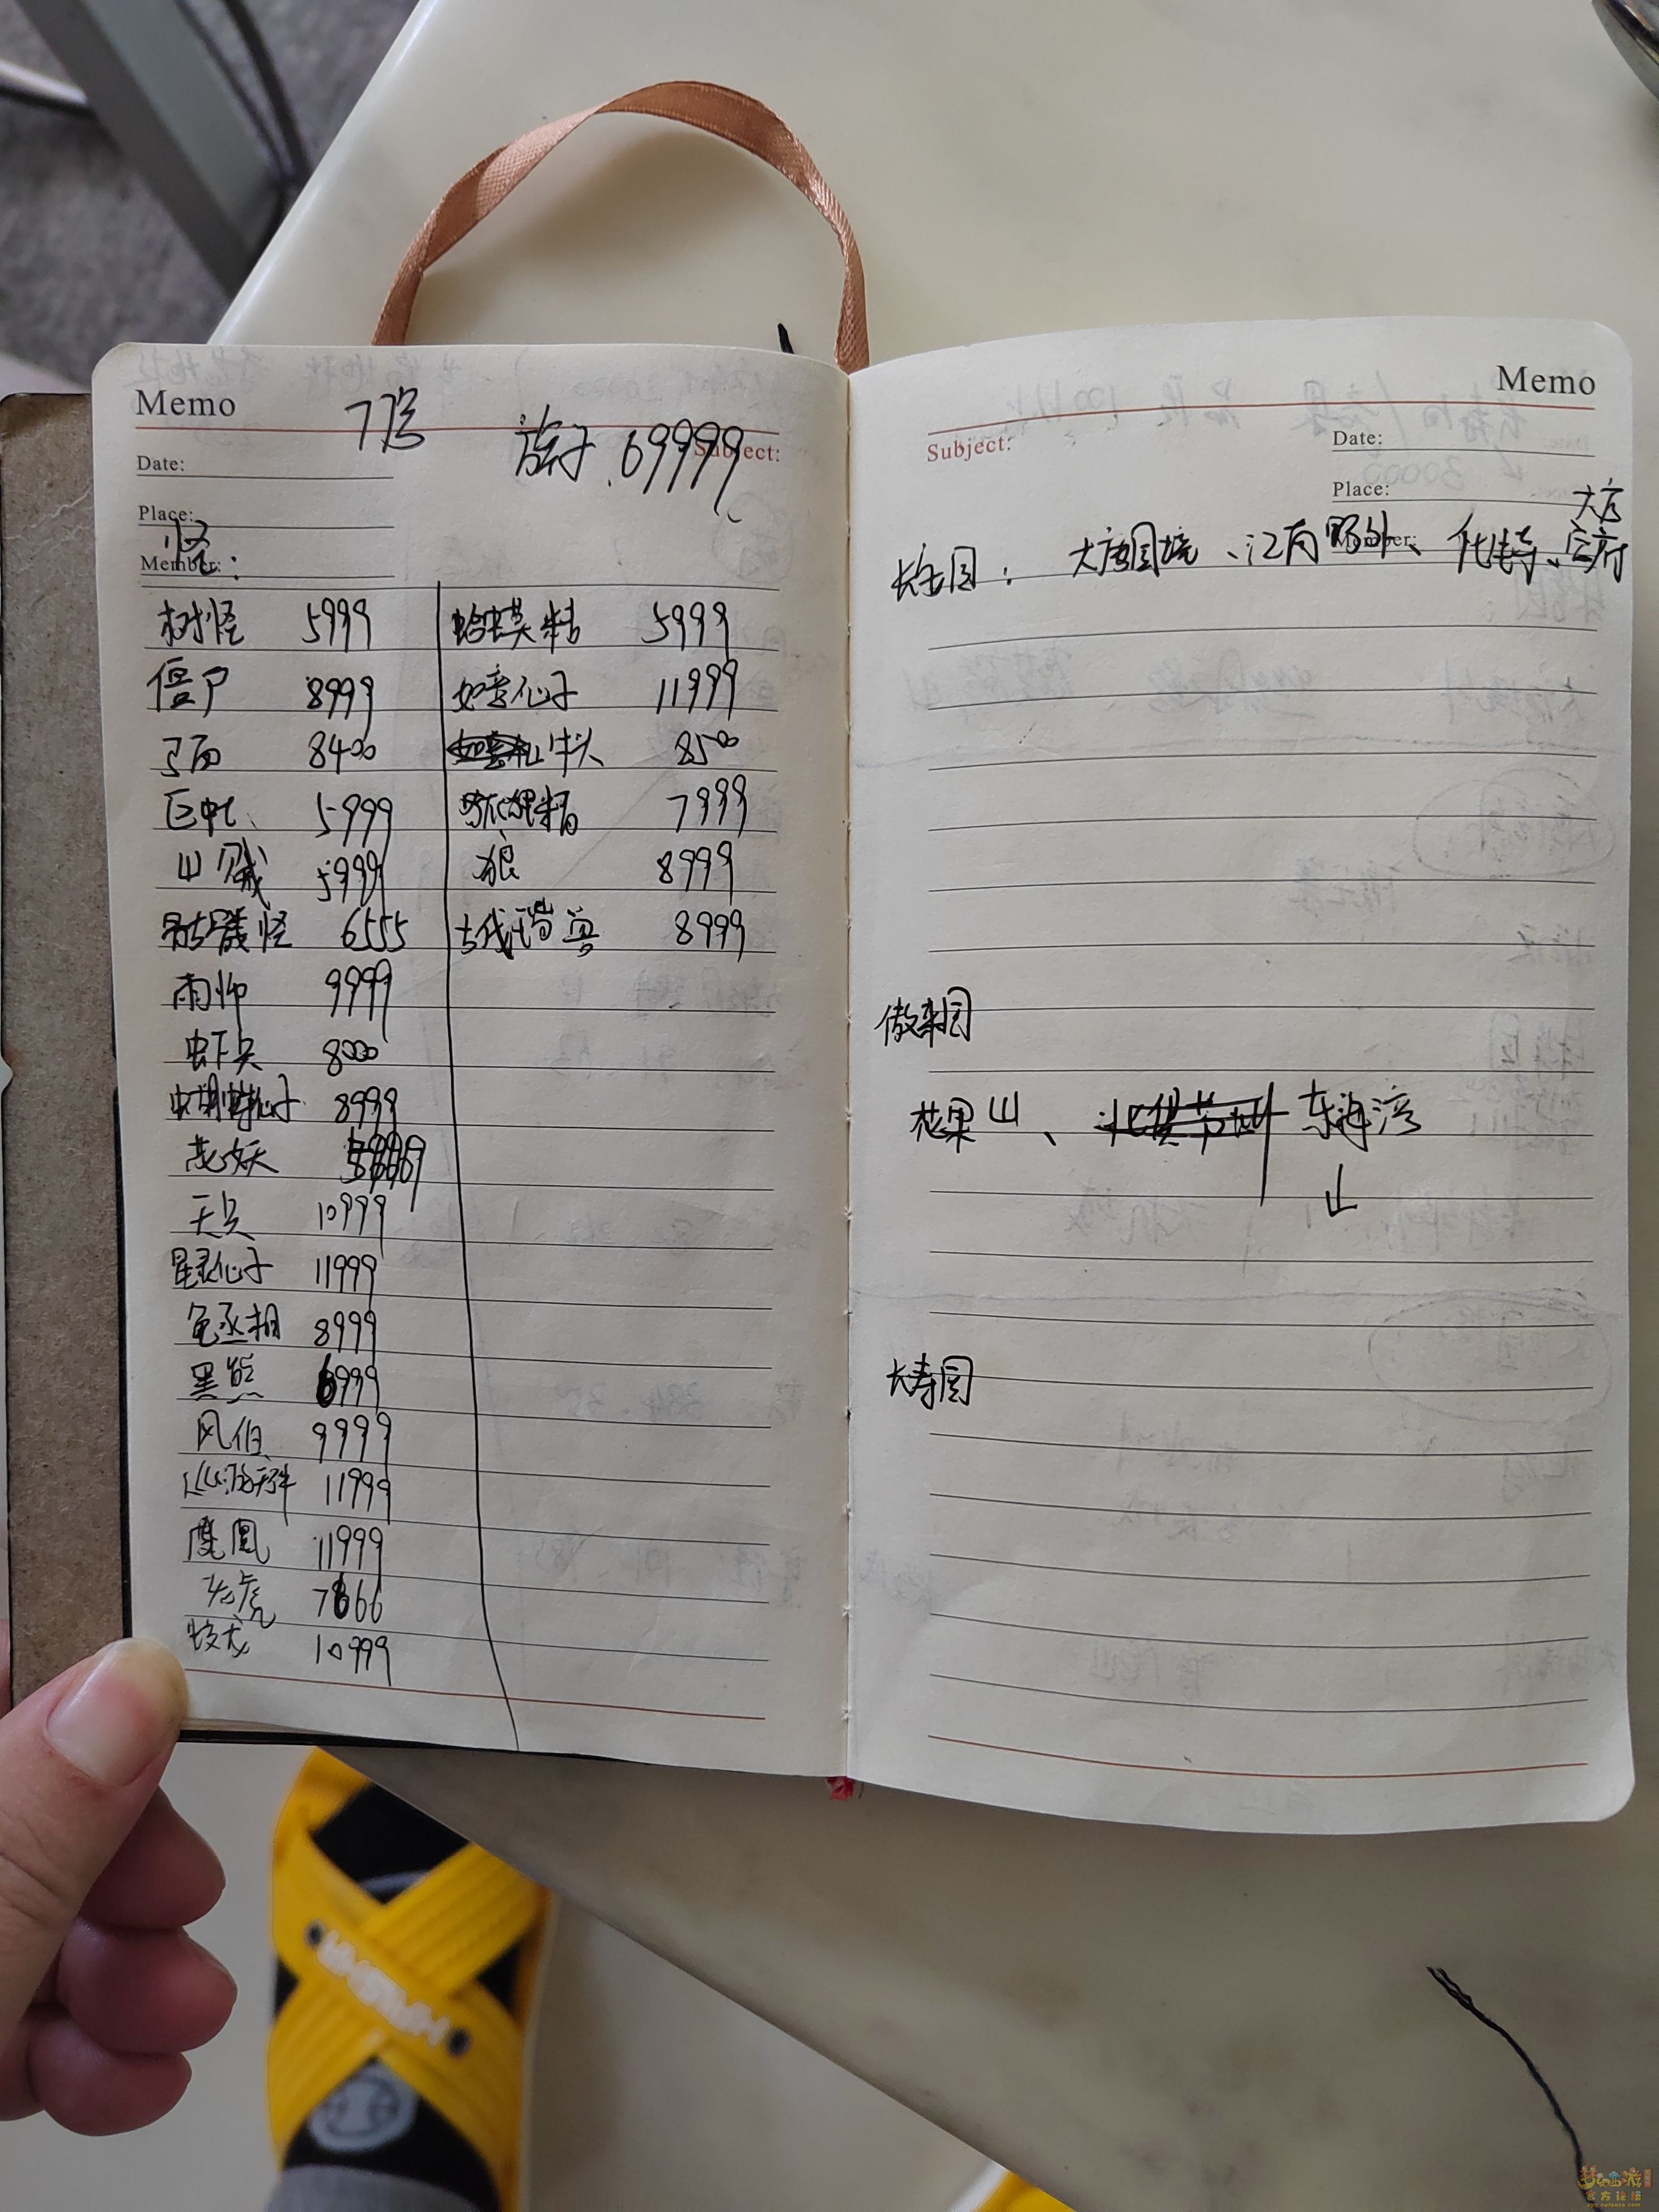 Memo
77号
旗子.69999
Subject:
Date:
Place:
怪:
Member:
树怪 5999
僵尸 8999
马面 8400
巨蛙 5999
山贼 5999
骷髅怪 6555
雨师 9999
虾兵 8000
蝴蝶仙子 8999
花妖
天兵 10999
星灵仙子 11999
龟丞相 8999
黑熊 6999
风伯 9999
11999
凤凰 11999
老虎 7866
蛟龙 10999
蛤蟆精 5999
如意仙子 11999
牛头 8500
狐狸精 7999
狼 8999
古代瑞兽 8999
Memo
Subject:
Date:
Place:
Member:
大唐
长安图: 大唐国境、江南野外、化生寺、官府
傲来图
花果山、 东海湾
山
长寿图
梦幻西游
官方论坛